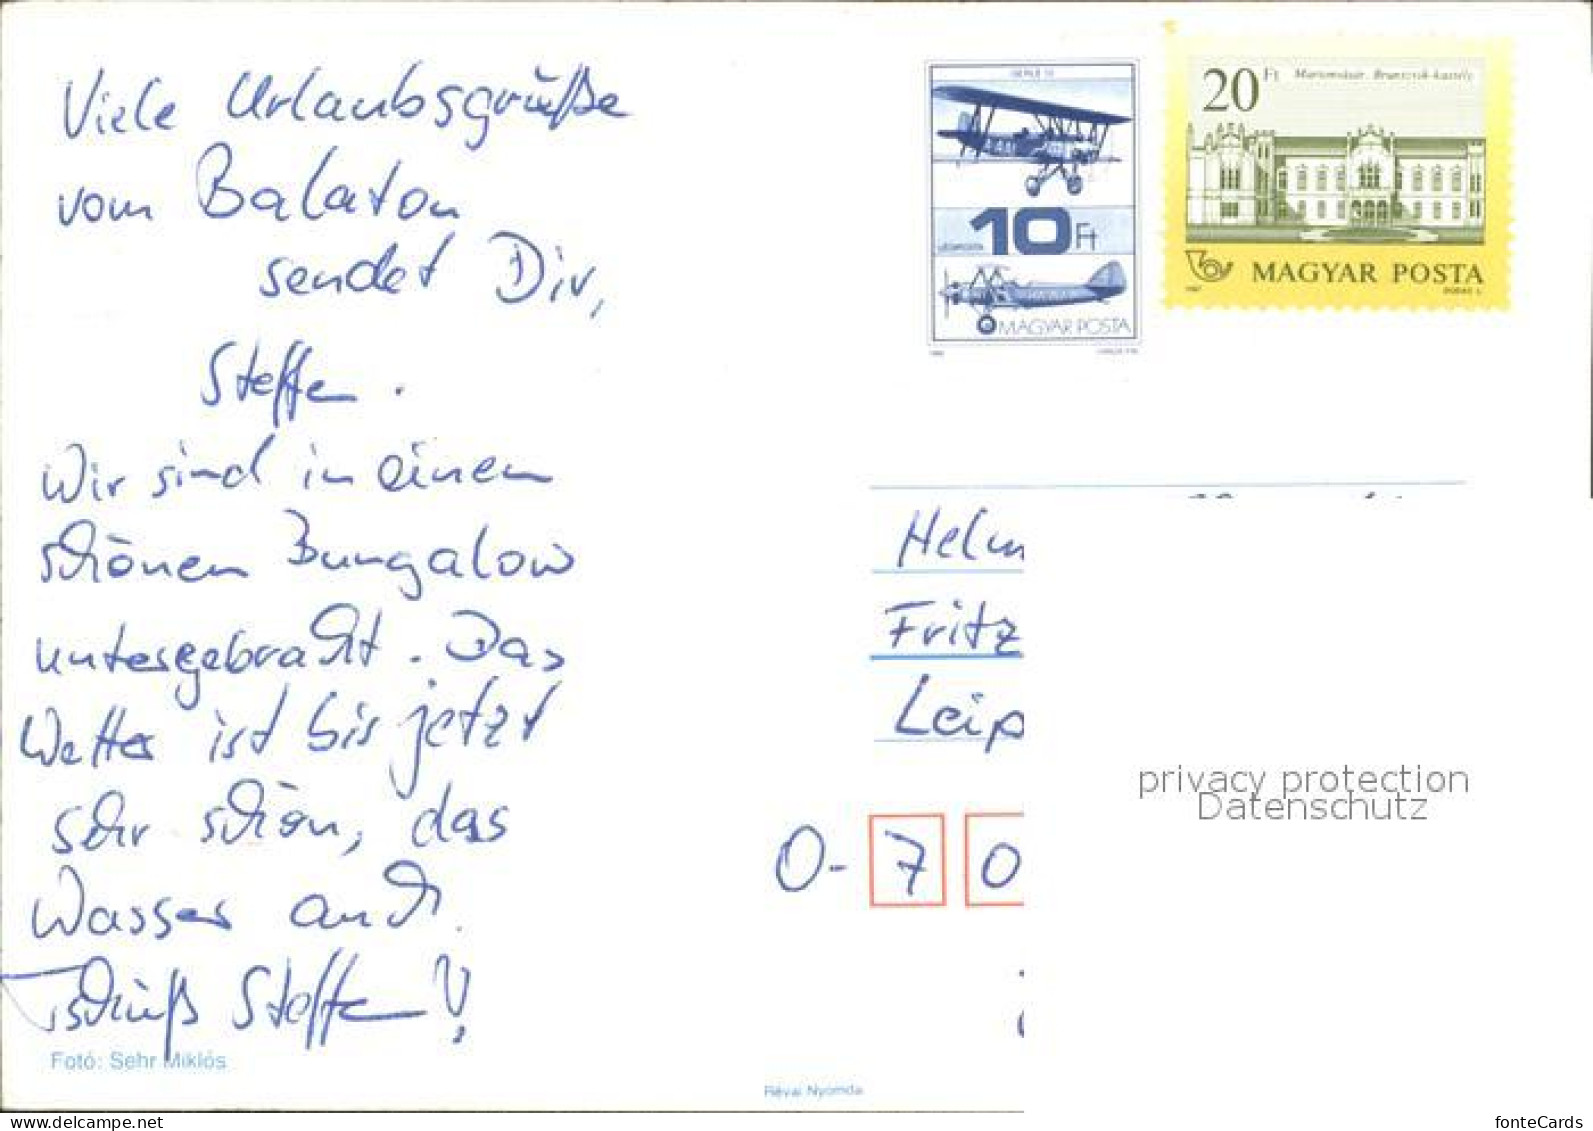 Viele Urlaubsgrüße
vom Balaton
sendet Dir,
Steffen.
Wir sind in einen
schönen Bungalow
untergebracht. Das
Wetter ist bis jetzt
sehr schön, das
Wasser auch.
Tschüß Steffen!
Fotó: Sehr Miklós
Révai Nyomda
10 Ft
LÉGIPOSTA
MAGYAR POSTA
20 Ft Martonvásár, Brunszvik-kastély
MAGYAR POSTA
Helm
Fritz
Leip
O-70
privacy protection
Datenschutz
delcampe.net
fonteCards